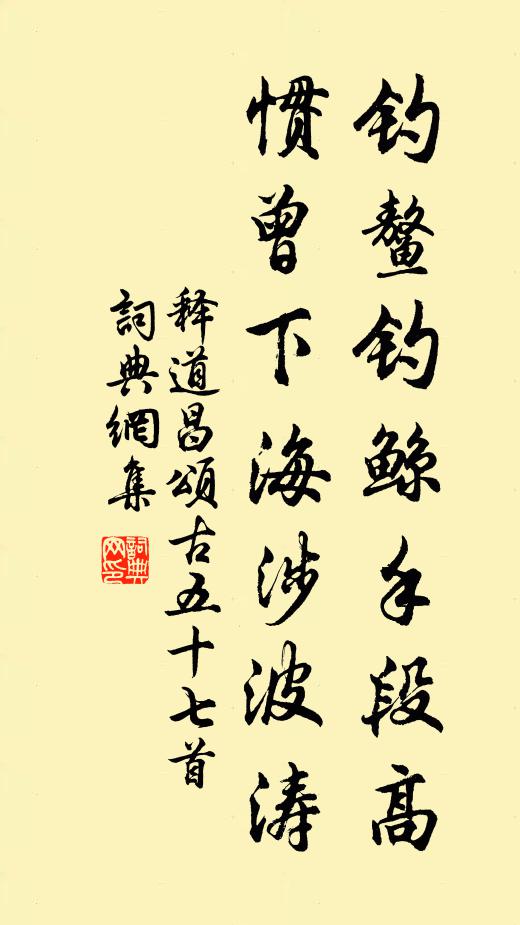 钓鳌钓鲸手段高
惯曾下海涉波涛
释道昌颂古五十七首
詞典網集
詞典
网印